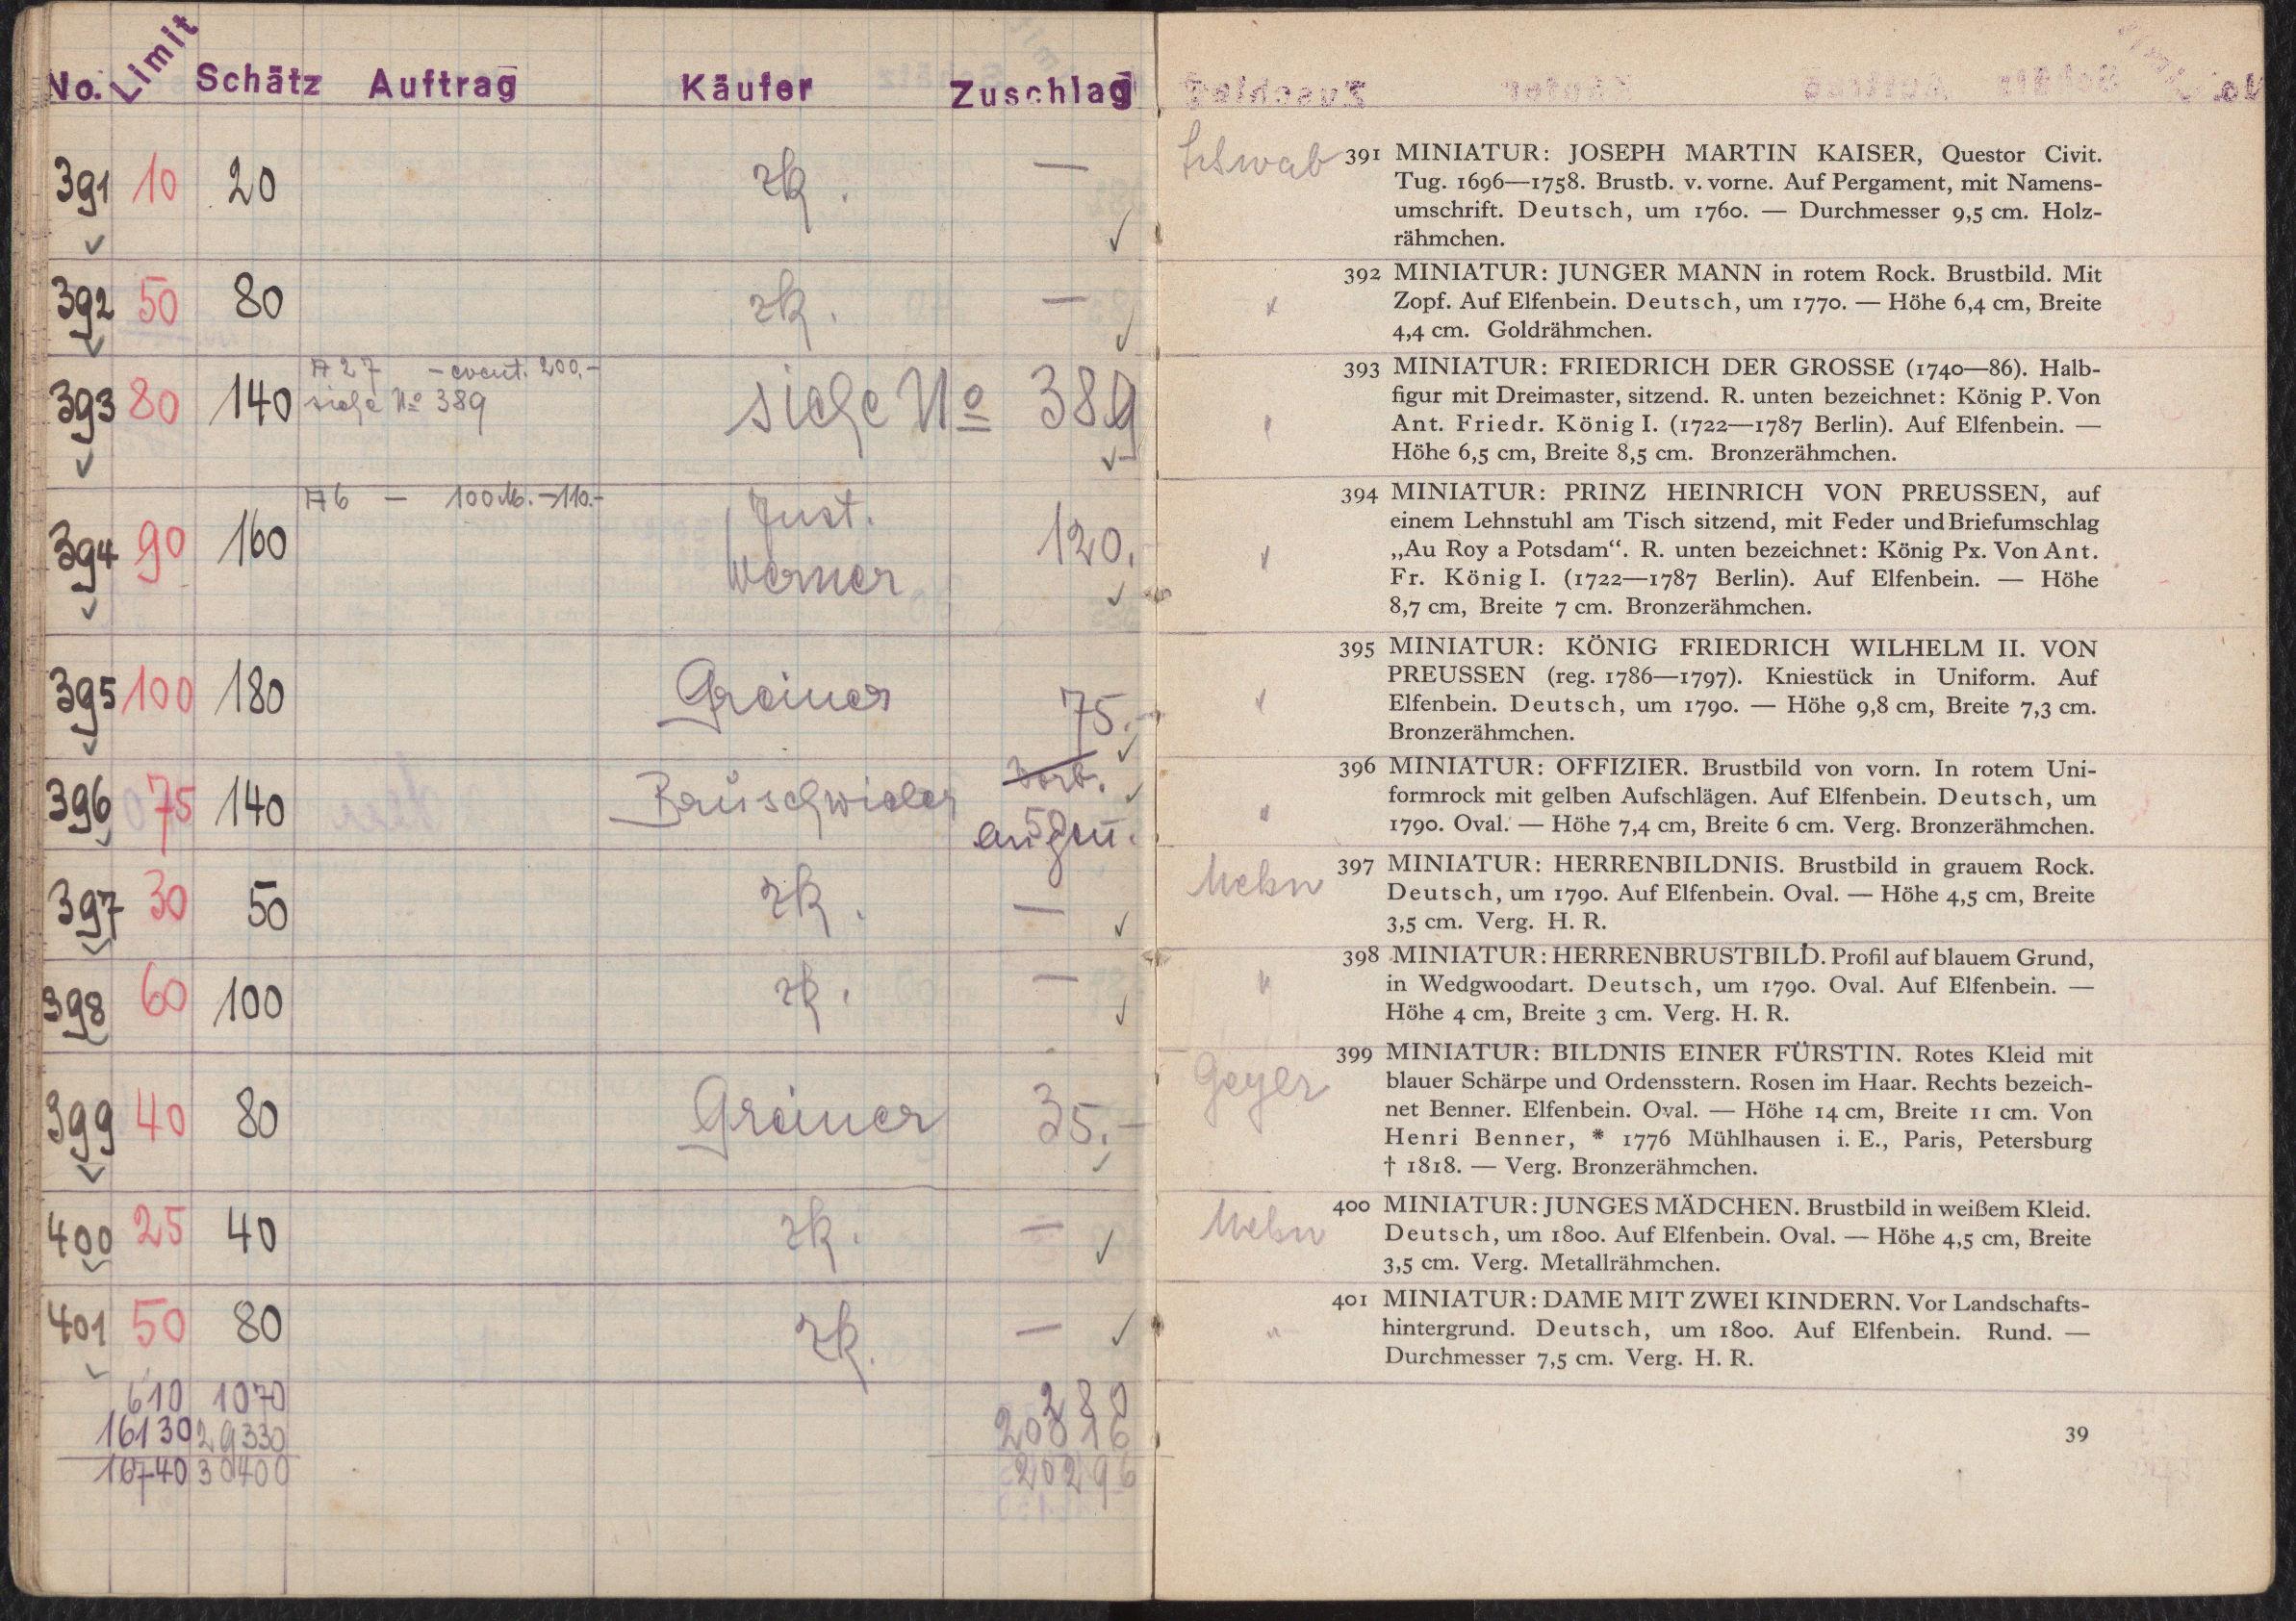 No. Limit Schätz Auftrag Käufer Zuschlag
391 10 20 zk. —
392 50 80 zk. —
A 27 - event. 200,-
393 80 140 siehe No 389 siehe No 389
A 6 — 100 M. - 110.-
394 90 160 Just. Werner 120.
395 100 180 Greiner 75.-
396 75 140 50
397 30 50 zk. —
398 60 100 zk. —
399 40 80 Greiner 35.-
400 25 40 zk. —
401 50 80 zk. —
610 1070 280
16130 29330 20016
16740 30400 20296
Schwab
391 MINIATUR: JOSEPH MARTIN KAISER, Questor Civit.
Tug. 1696—1758. Brustb. v. vorne. Auf Pergament, mit Namens-
umschrift. Deutsch, um 1760. — Durchmesser 9,5 cm. Holz-
rähmchen.
392 MINIATUR: JUNGER MANN in rotem Rock. Brustbild. Mit
Zopf. Auf Elfenbein. Deutsch, um 1770. — Höhe 6,4 cm, Breite
4,4 cm. Goldrähmchen.
393 MINIATUR: FRIEDRICH DER GROSSE (1740—86). Halb-
figur mit Dreimaster, sitzend. R. unten bezeichnet: König P. Von
Ant. Friedr. König I. (1722—1787 Berlin). Auf Elfenbein. —
Höhe 6,5 cm, Breite 8,5 cm. Bronzerähmchen.
394 MINIATUR: PRINZ HEINRICH VON PREUSSEN, auf
einem Lehnstuhl am Tisch sitzend, mit Feder und Briefumschlag
„Au Roy a Potsdam“. R. unten bezeichnet: König Px. Von Ant.
Fr. König I. (1722—1787 Berlin). Auf Elfenbein. — Höhe
8,7 cm, Breite 7 cm. Bronzerähmchen.
395 MINIATUR: KÖNIG FRIEDRICH WILHELM II. VON
PREUSSEN (reg. 1786—1797). Kniestück in Uniform. Auf
Elfenbein. Deutsch, um 1790. — Höhe 9,8 cm, Breite 7,3 cm.
Bronzerähmchen.
396 MINIATUR: OFFIZIER. Brustbild von vorn. In rotem Uni-
formrock mit gelben Aufschlägen. Auf Elfenbein. Deutsch, um
1790. Oval. — Höhe 7,4 cm, Breite 6 cm. Verg. Bronzerähmchen.
397 MINIATUR: HERRENBILDNIS. Brustbild in grauem Rock.
Deutsch, um 1790. Auf Elfenbein. Oval. — Höhe 4,5 cm, Breite
3,5 cm. Verg. H. R.
398 MINIATUR: HERRENBRUSTBILD. Profil auf blauem Grund,
in Wedgwoodart. Deutsch, um 1790. Oval. Auf Elfenbein. —
Höhe 4 cm, Breite 3 cm. Verg. H. R.
Geyer
399 MINIATUR: BILDNIS EINER FÜRSTIN. Rotes Kleid mit
blauer Schärpe und Ordensstern. Rosen im Haar. Rechts bezeich-
net Benner. Elfenbein. Oval. — Höhe 14 cm, Breite 11 cm. Von
Henri Benner, * 1776 Mühlhausen i. E., Paris, Petersburg
† 1818. — Verg. Bronzerähmchen.
400 MINIATUR: JUNGES MÄDCHEN. Brustbild in weißem Kleid.
Deutsch, um 1800. Auf Elfenbein. Oval. — Höhe 4,5 cm, Breite
3,5 cm. Verg. Metallrähmchen.
401 MINIATUR: DAME MIT ZWEI KINDERN. Vor Landschafts-
hintergrund. Deutsch, um 1800. Auf Elfenbein. Rund. —
Durchmesser 7,5 cm. Verg. H. R.
39